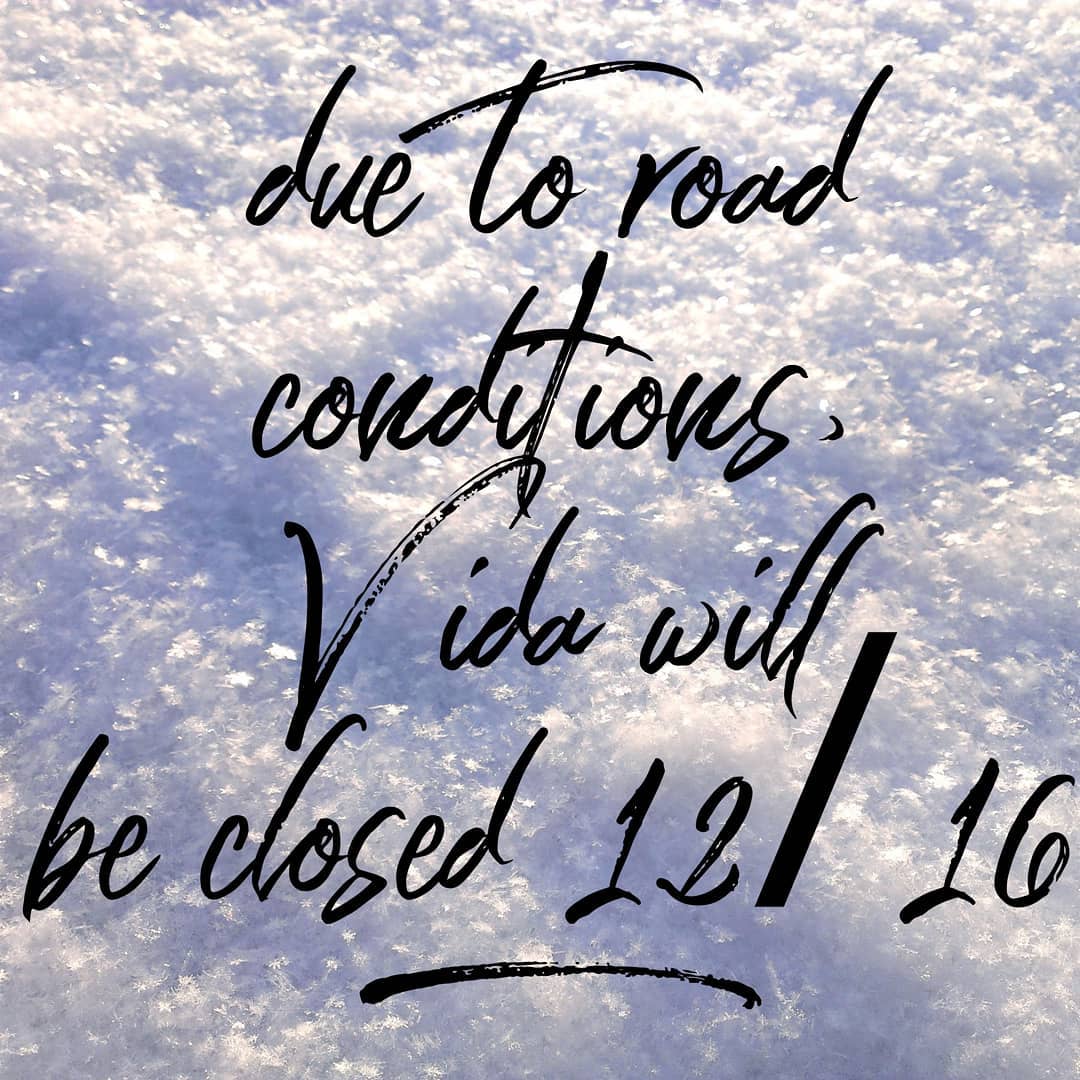 due to road
conditions,
Vida will
be closed 12/16